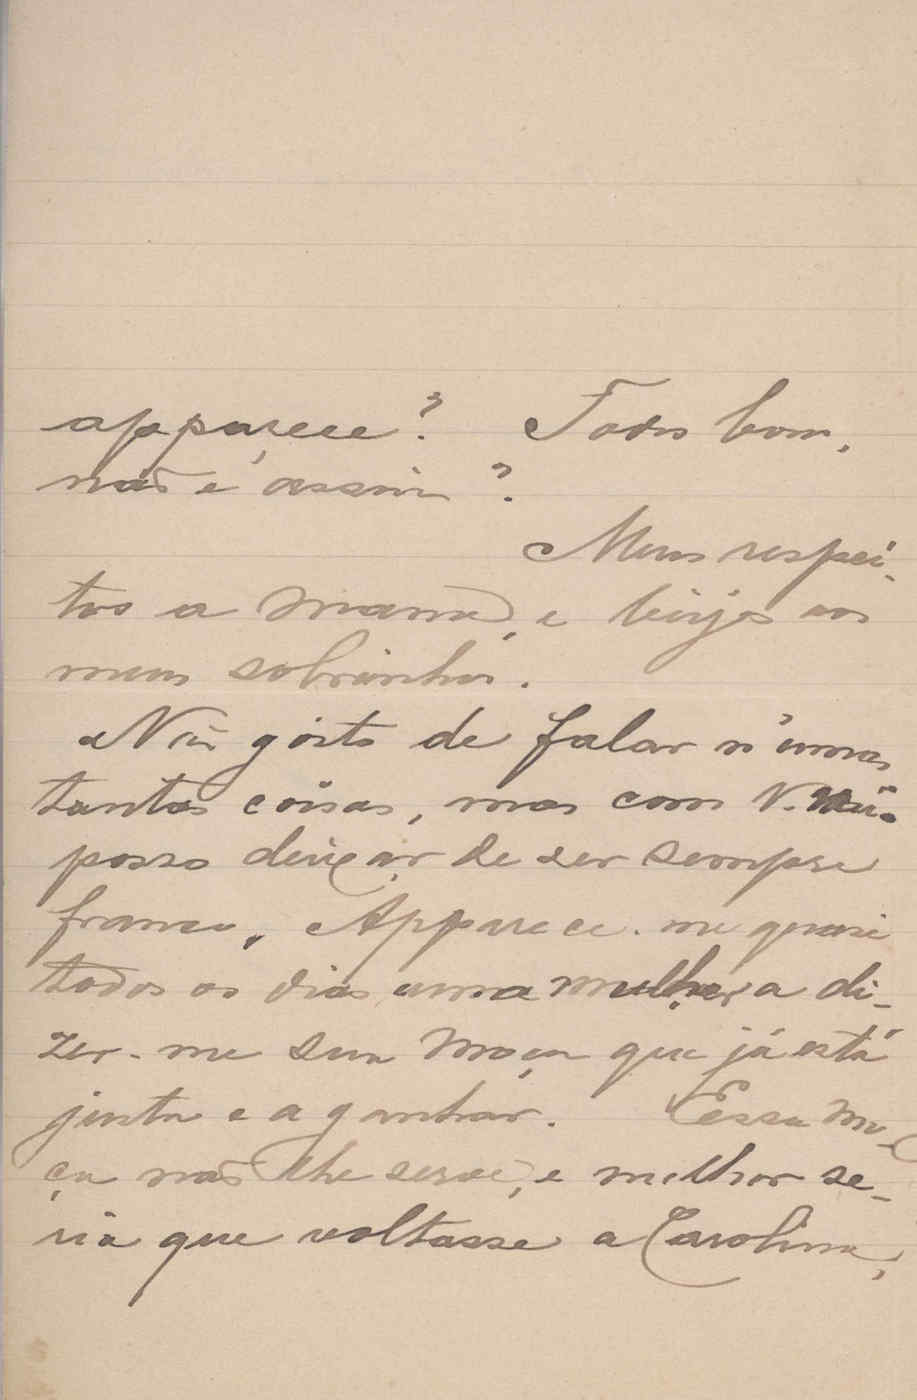 apparece? Todos bem,
não é assim?
Meus respei-
tos a Mamã, e beijos aos
meus sobrinhos.
Não gósto de falar n'umas
tantas coisas, mas com V. não
posso deixar de ser sempre
franco. Apparece-me quasi
todos os dias uma mulher a di-
zer-me sua moça que já está
justa e a ganhar. Essa mo-
ça não lhe serve, e melhor se-
ria que voltasse a Carolina,